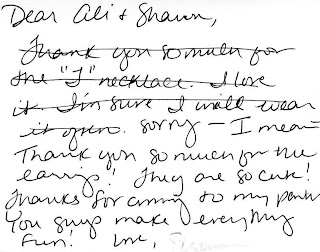 Dear Ali & Sharon,
Thank you so much for
the "J" necklace. I love
it. I'm sure I will wear
it often. sorry – I mean
Thank you so much for the
earrings! They are so cute!
Thanks for coming to my party
You guys make everything
Fun! Love,